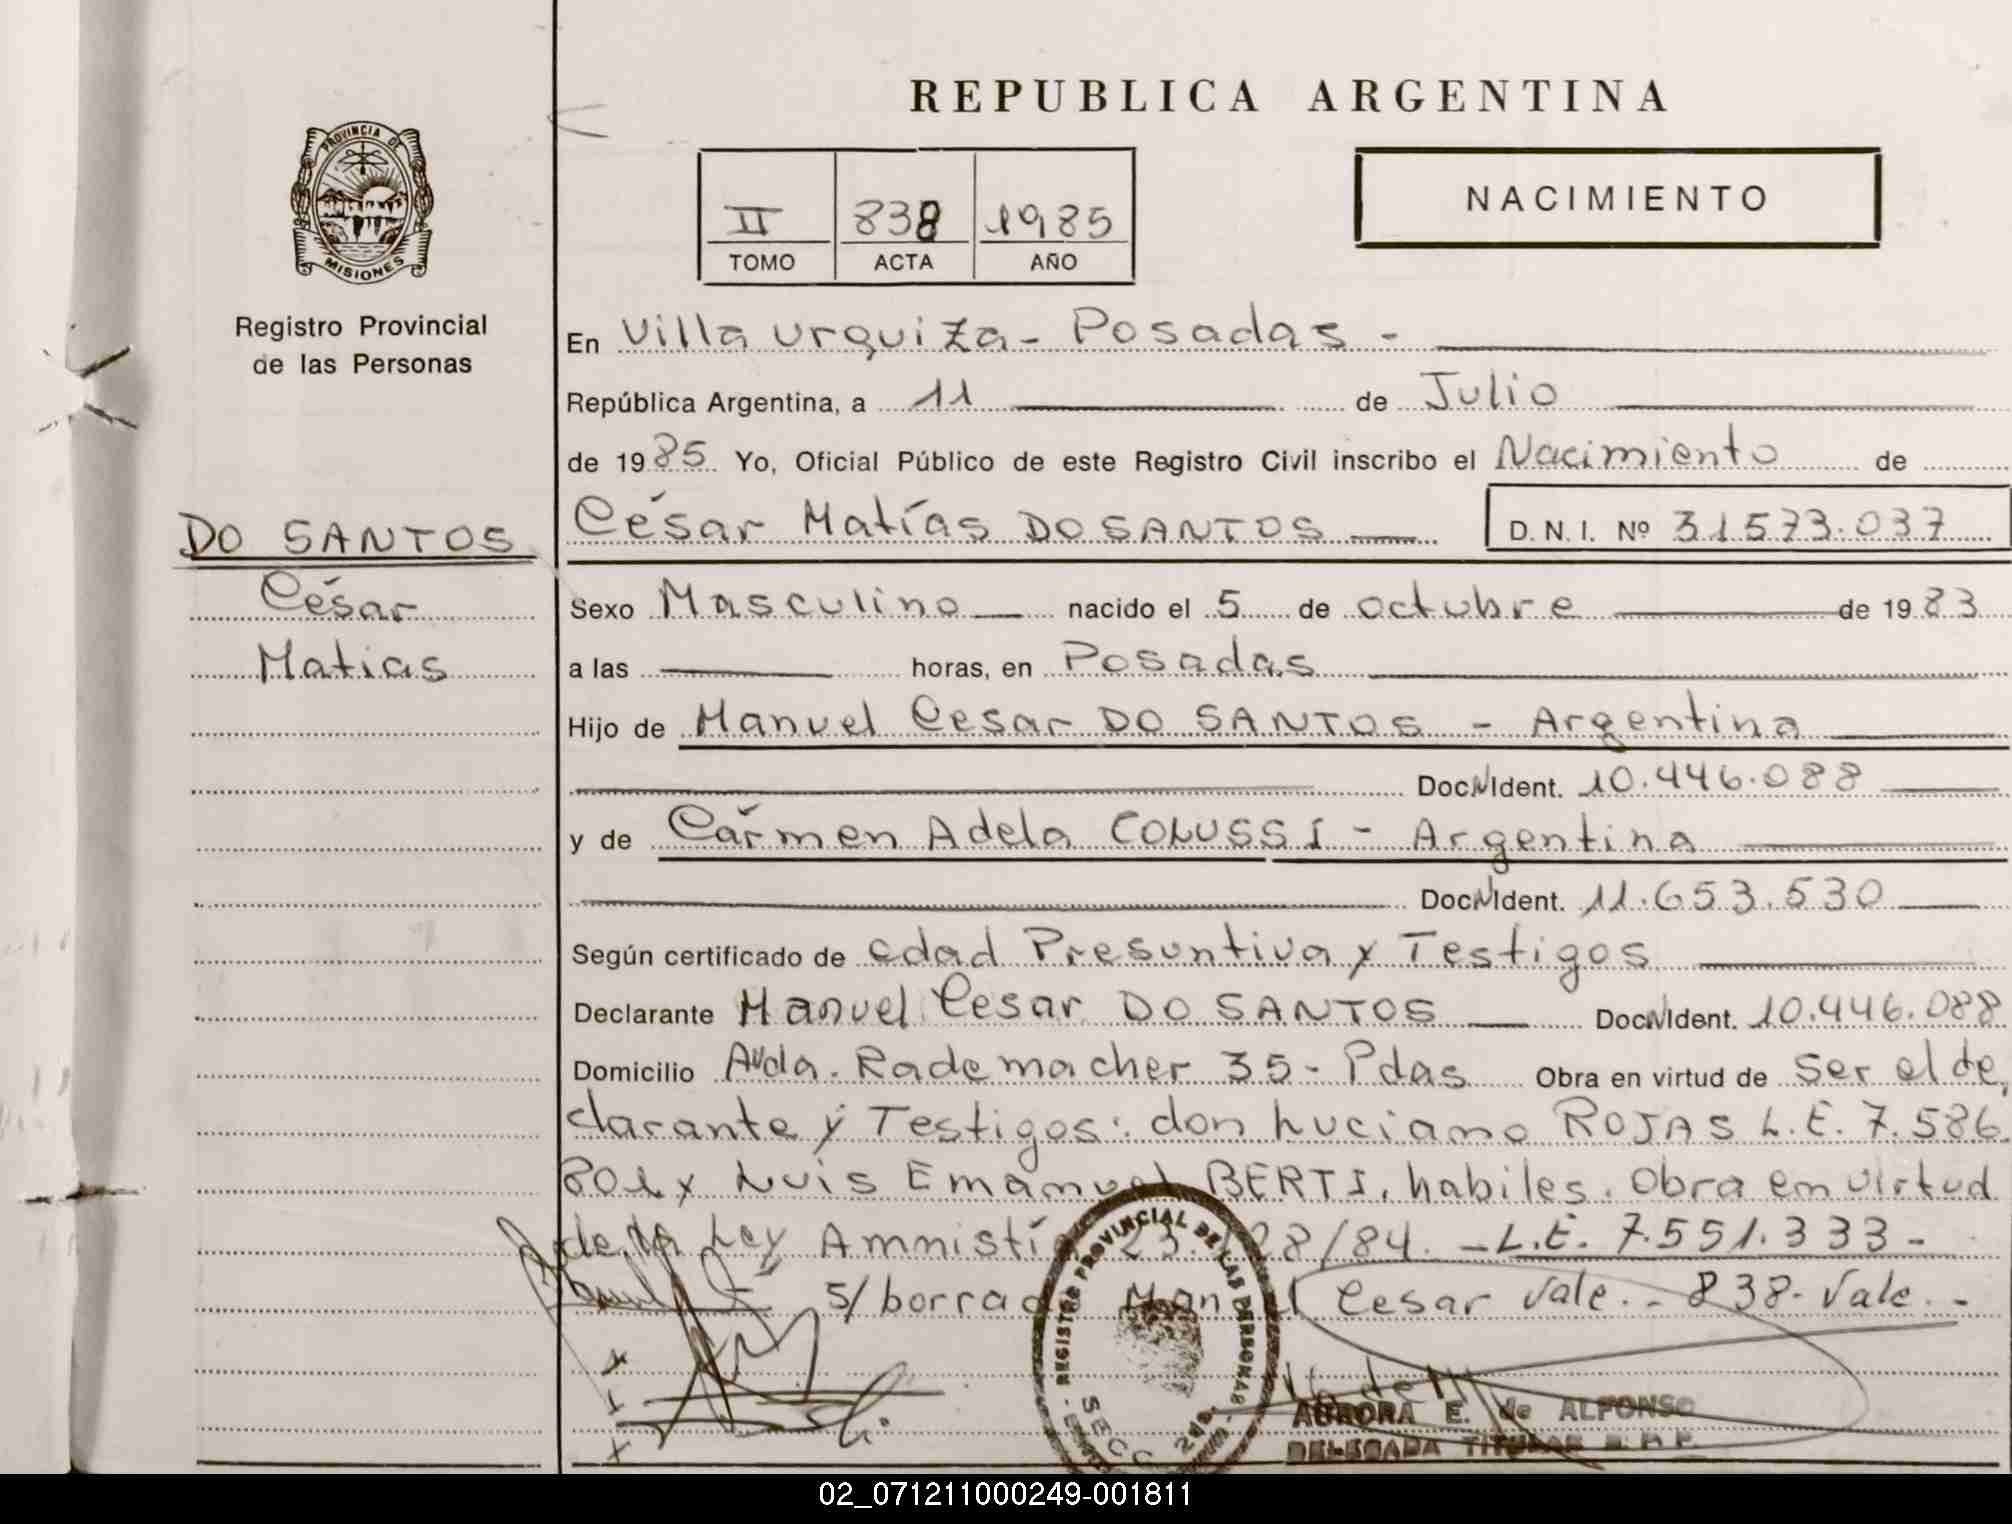 REPUBLICA ARGENTINA
PROVINCIA DE
MISIONES
Registro Provincial
de las Personas
II 838 1985
TOMO ACTA AÑO
NACIMIENTO
En Villa Urquiza - Posadas -
República Argentina, a 11 de Julio
de 1985. Yo, Oficial Público de este Registro Civil inscribo el Nacimiento de
DO SANTOS
César
Matias
César Matías DO SANTOS D.N.I. Nº 31573.037
Sexo Masculino nacido el 5 de octubre de 1983
a las horas, en Posadas
Hijo de Manuel Cesar DO SANTOS - Argentina
Doc. N Ident. 10.446.088
y de Cármen Adela COLUSSI - Argentina
Doc. N Ident. 11.653.530
Según certificado de edad Presuntiva y Testigos
Declarante Manuel Cesar DO SANTOS Doc. N Ident. 10.446.088
Domicilio Avda. Rademacher 35 - Pdas Obra en virtud de ser el de
clarante y Testigos: don Luciano ROJAS L.E. 7.586
801 y Luis Emanuel BERTI, habiles. Obra en virtud
de la Ley Amnistía 23. 28/84. - L.E. 7.551.333 -
S/borrado Manuel Cesar Vale. - 838 - Vale. -
REGISTRO PROVINCIAL DE LAS PERSONAS
SECC. 2da.
AURORA E. de ALFONSO
DELEGADA TITULAR
02_071211000249-001811